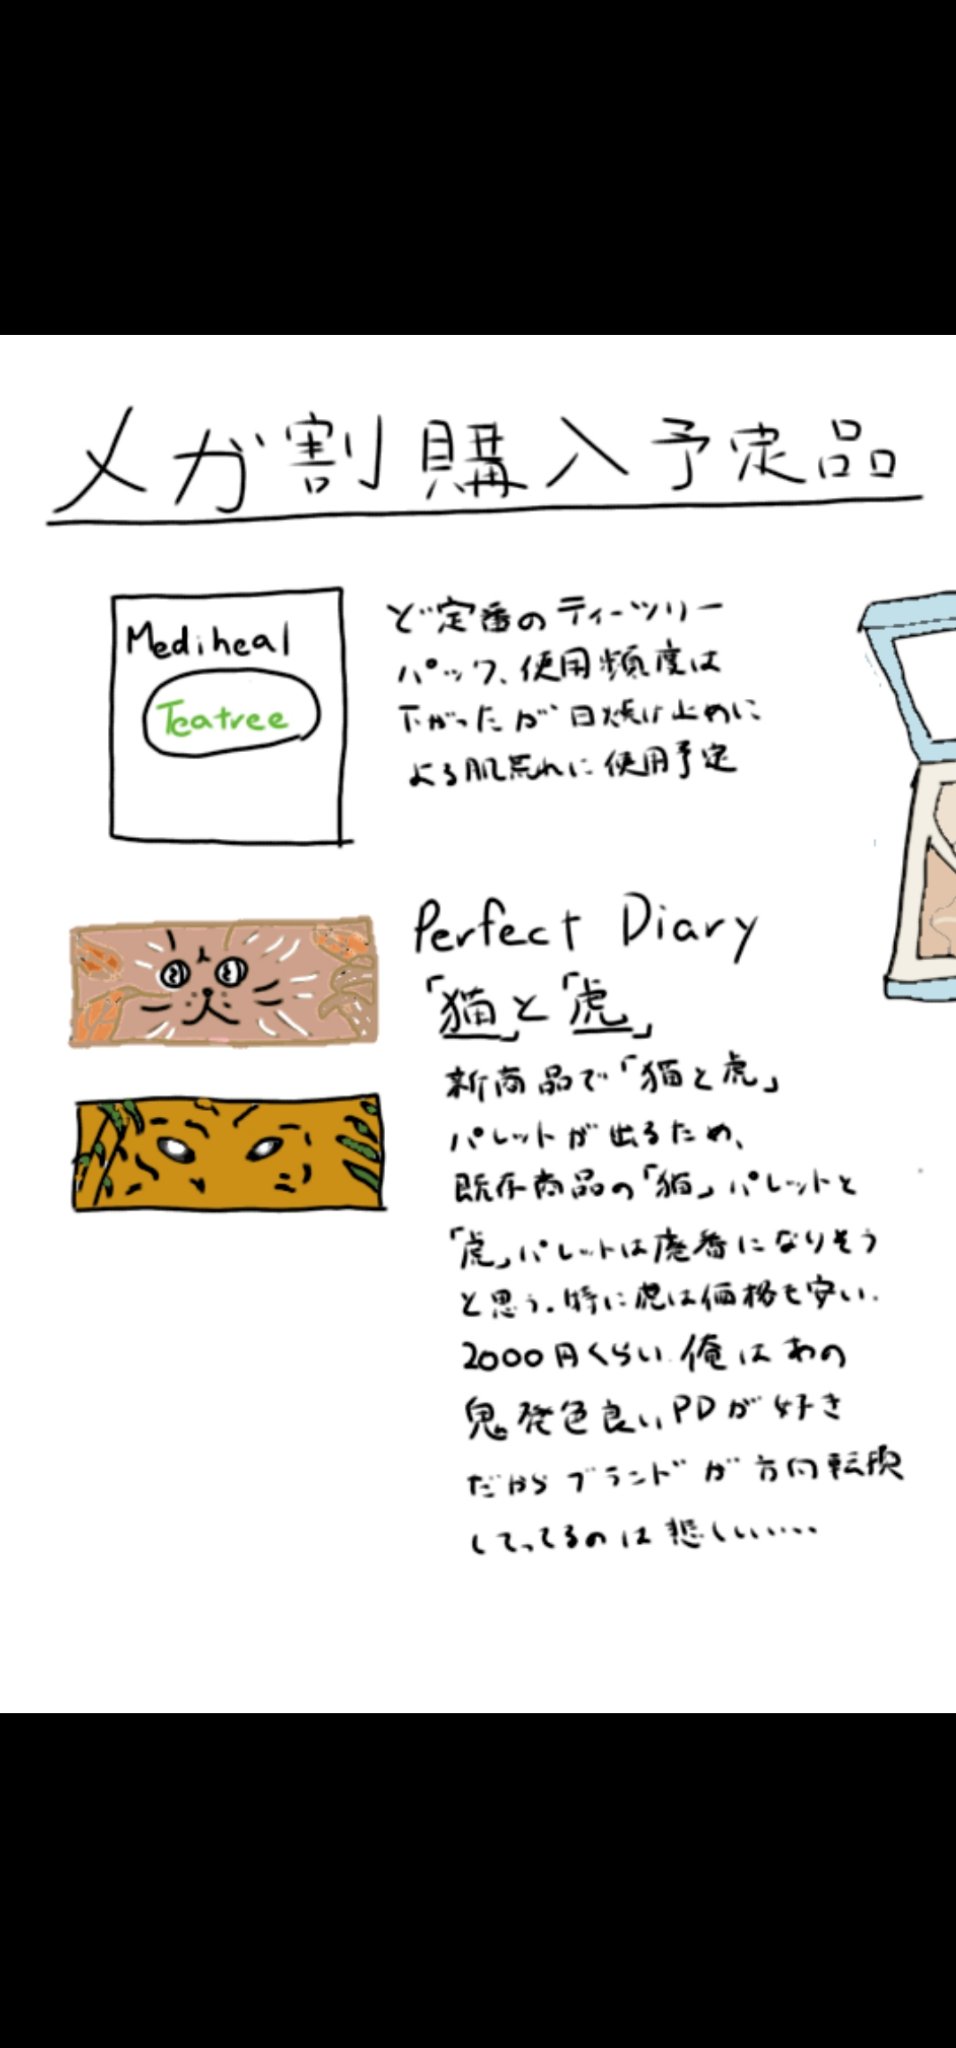 メガ割購入予定品
Mediheal
Teatree
ど定番のティーツリー
パック、使用頻度は
下がったが日焼け止めに
よる肌荒れに使用予定
Perfect Diary
「猫」と「虎」
新商品で「猫と虎」
パレットが出るため、
既存商品の「猫」パレットと
「虎」パレットは廃番になりそう
と思う。特に虎は価格も安い。
2000円くらい 俺はあの
鬼発色良いPDが好き
だからブランドが方向転換
してってるのは悲しいい・・・